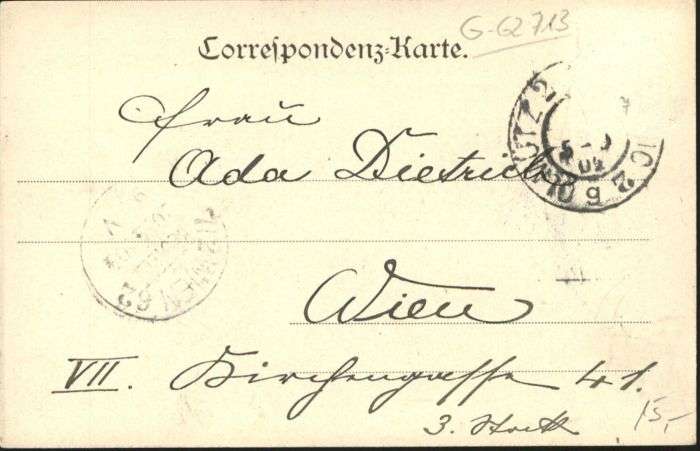 G-Q2713
Correspondenz-Karte.
Frau
Ada Dietrich
Wien
VII. Kirchengasse 41.
3. Stock
15,-
OLMÜTZ 2
04
WIEN 62